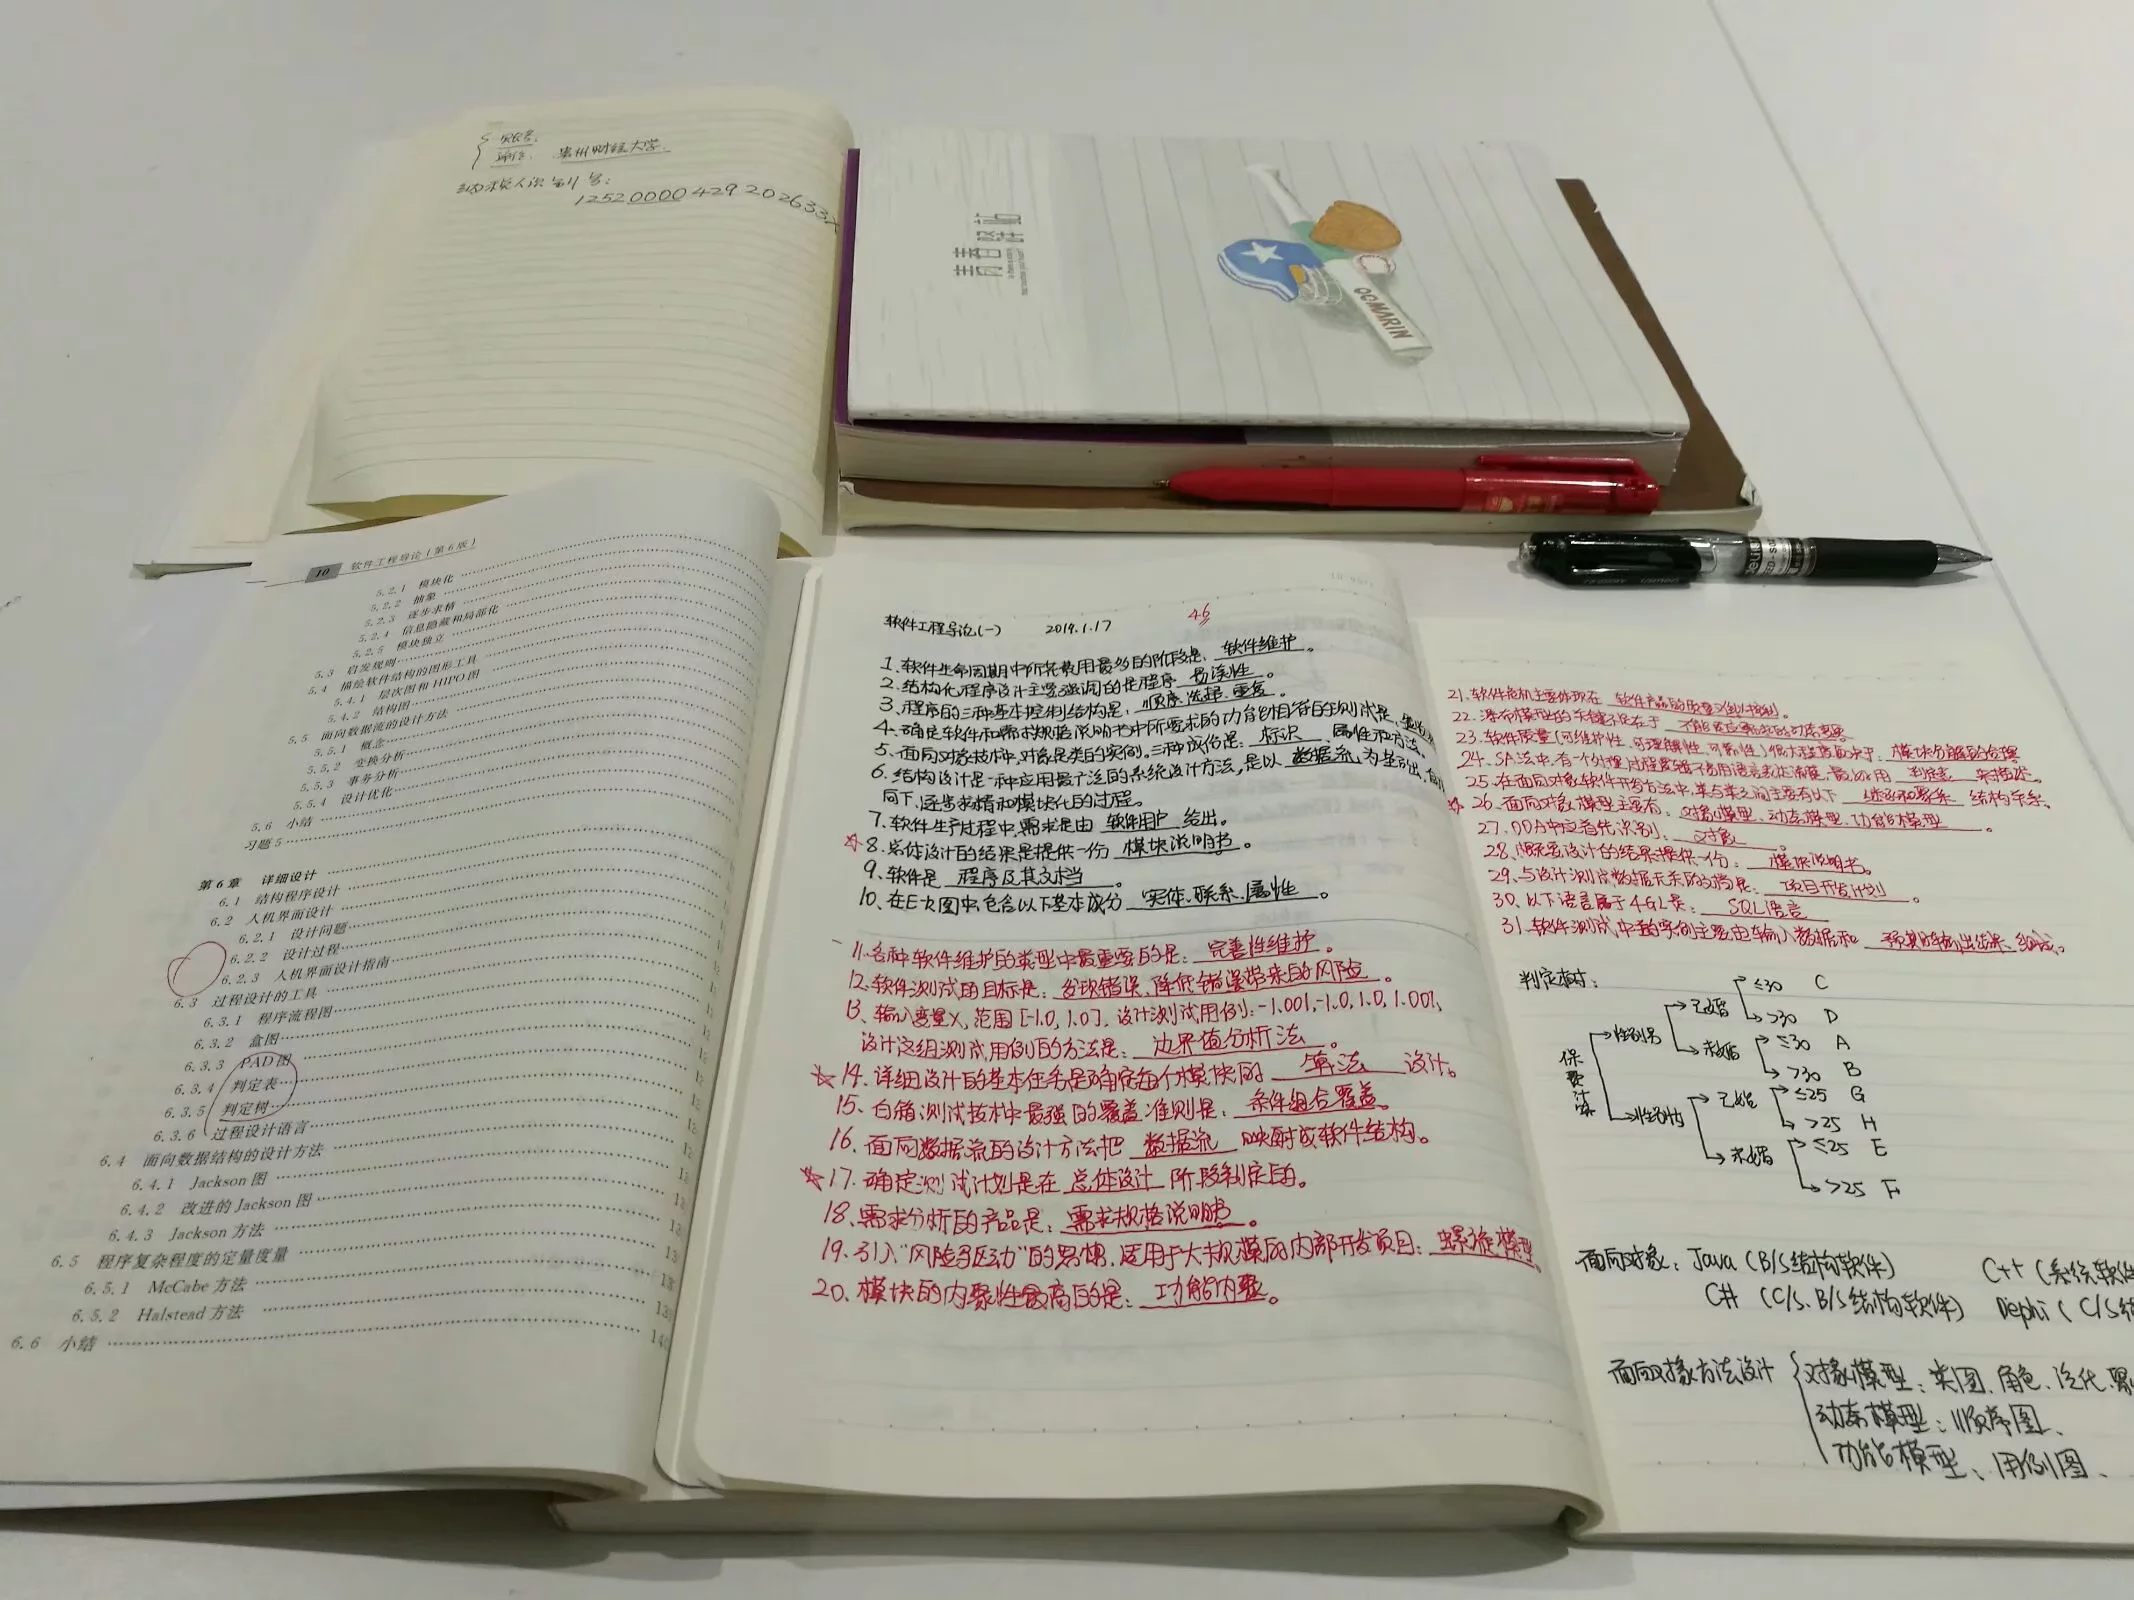 单位: 贵州财经大学
纳税人识别号:
12520000429202633X
青春驿站
OCIMARIN
10 软件工程导论(第6版)
5.2.1 模块化
5.2.2 抽象
5.2.3 逐步求精
5.2.4 信息隐藏和局部化
5.2.5 模块独立
5.3 启发规则
5.4 描绘软件结构的图形工具
5.4.1 层次图和HIPO图
5.4.2 结构图
5.5 面向数据流的设计方法
5.5.1 概念
5.5.2 变换分析
5.5.3 事务分析
5.5.4 设计优化
5.6 小结
习题5
第6章 详细设计
6.1 结构程序设计
6.2 人机界面设计
6.2.1 设计问题
6.2.2 设计过程
6.2.3 人机界面设计指南
6.3 过程设计的工具
6.3.1 程序流程图
6.3.2 盒图
6.3.3 PAD图
6.3.4 判定表
6.3.5 判定树
6.3.6 过程设计语言
6.4 面向数据结构的设计方法
6.4.1 Jackson图
6.4.2 改进的Jackson图
6.4.3 Jackson方法
6.5 程序复杂程度的定量度量
6.5.1 McCabe方法
6.5.2 Halstead方法
6.6 小结
软件工程导论(一) 2019.1.17 46
1、软件生命周期中所花费用最多的阶段是: 软件维护。
2、结构化程序设计主要强调的是程序 易读性。
3、程序的三种基本控制结构是: 顺序.选择.重复。
4、确定软件和需求规格说明书中所要求的功能的相符的测试是:
5、面向对象技术中,对象是类的实例,三种成份是: 标识、属性和方法。
6、结构设计是一种应用最广泛的系统设计方法,是以 数据流 为基础出,自顶
向下,逐步求精和模块化的过程。
7、软件生产过程中,需求是由 软件用户 给出。
☆8、总体设计的结果是提供一份 模块说明书。
9、软件是 程序及其文档。
10、在E-R图中,包含以下基本成分 实体.联系.属性。
11、各种软件维护的类型中最重要的是: 完善性维护。
12、软件测试的目标是: 发现错误、降低错误带来的风险。
13、输入变量X,范围[-1.0,1.0],设计测试用例:-1.001,-1.0,1.0,1.001,
设计这组测试用例的方法是: 边界值分析法。
☆14、详细设计的基本任务是确定每个模块的 算法 设计。
15、白箱测试技术中最强的覆盖准则是: 条件组合覆盖。
16、面向数据流的设计方法把 数据流 映射成软件结构。
☆17、确定测试计划是在 总体设计 阶段制定的。
18、需求分析的产品是: 需求规格说明书。
19、引入“风险驱动”的思想,适用于大规模的内部开发项目: 螺旋模型。
20、模块的内聚性最高的是: 功能内聚。
21、软件危机主要体现在 软件产品的质量难以控制。
22、瀑布模型的关键不足在于 不能适应需求的动态变更。
23、软件质量(可维护性、可理解性、可靠性)很大程度取决于: 模块分解的合理
24、SA法中,有一个处理过程逻辑不易用语言表达清楚,最好用 判定表 来描述。
25、在面向对象软件开发方法中,类与类之间主要有以下 继承和聚集 结构关系。
☆26、面向对象模型主要有: 对象模型、动态模型、功能模型。
27、OOA中应首先识别: 对象。
28、概要设计的结果提供一份: 模块说明书。
29、与设计测试数据无关的文档是: 项目开发计划。
30、以下语言属于4GL是: SQL语言
31、软件测试中的实例主要由输入数据和 预期的输出结果 组成。
判定树:
保费计算
性别男 已婚 ≤30 C
>30 D
未婚 ≤30 A
>30 B
性别女 已婚 ≤25 G
>25 H
未婚 ≤25 E
>25 F
面向对象: Java (B/S结构软件) C++ (系统软件
C# (C/S、B/S结构软件) Dephi (C/S结
面向对象方法设计 { 对象模型: 类图、角色、泛化、聚
动态模型: 顺序图、
功能模型、用例图、